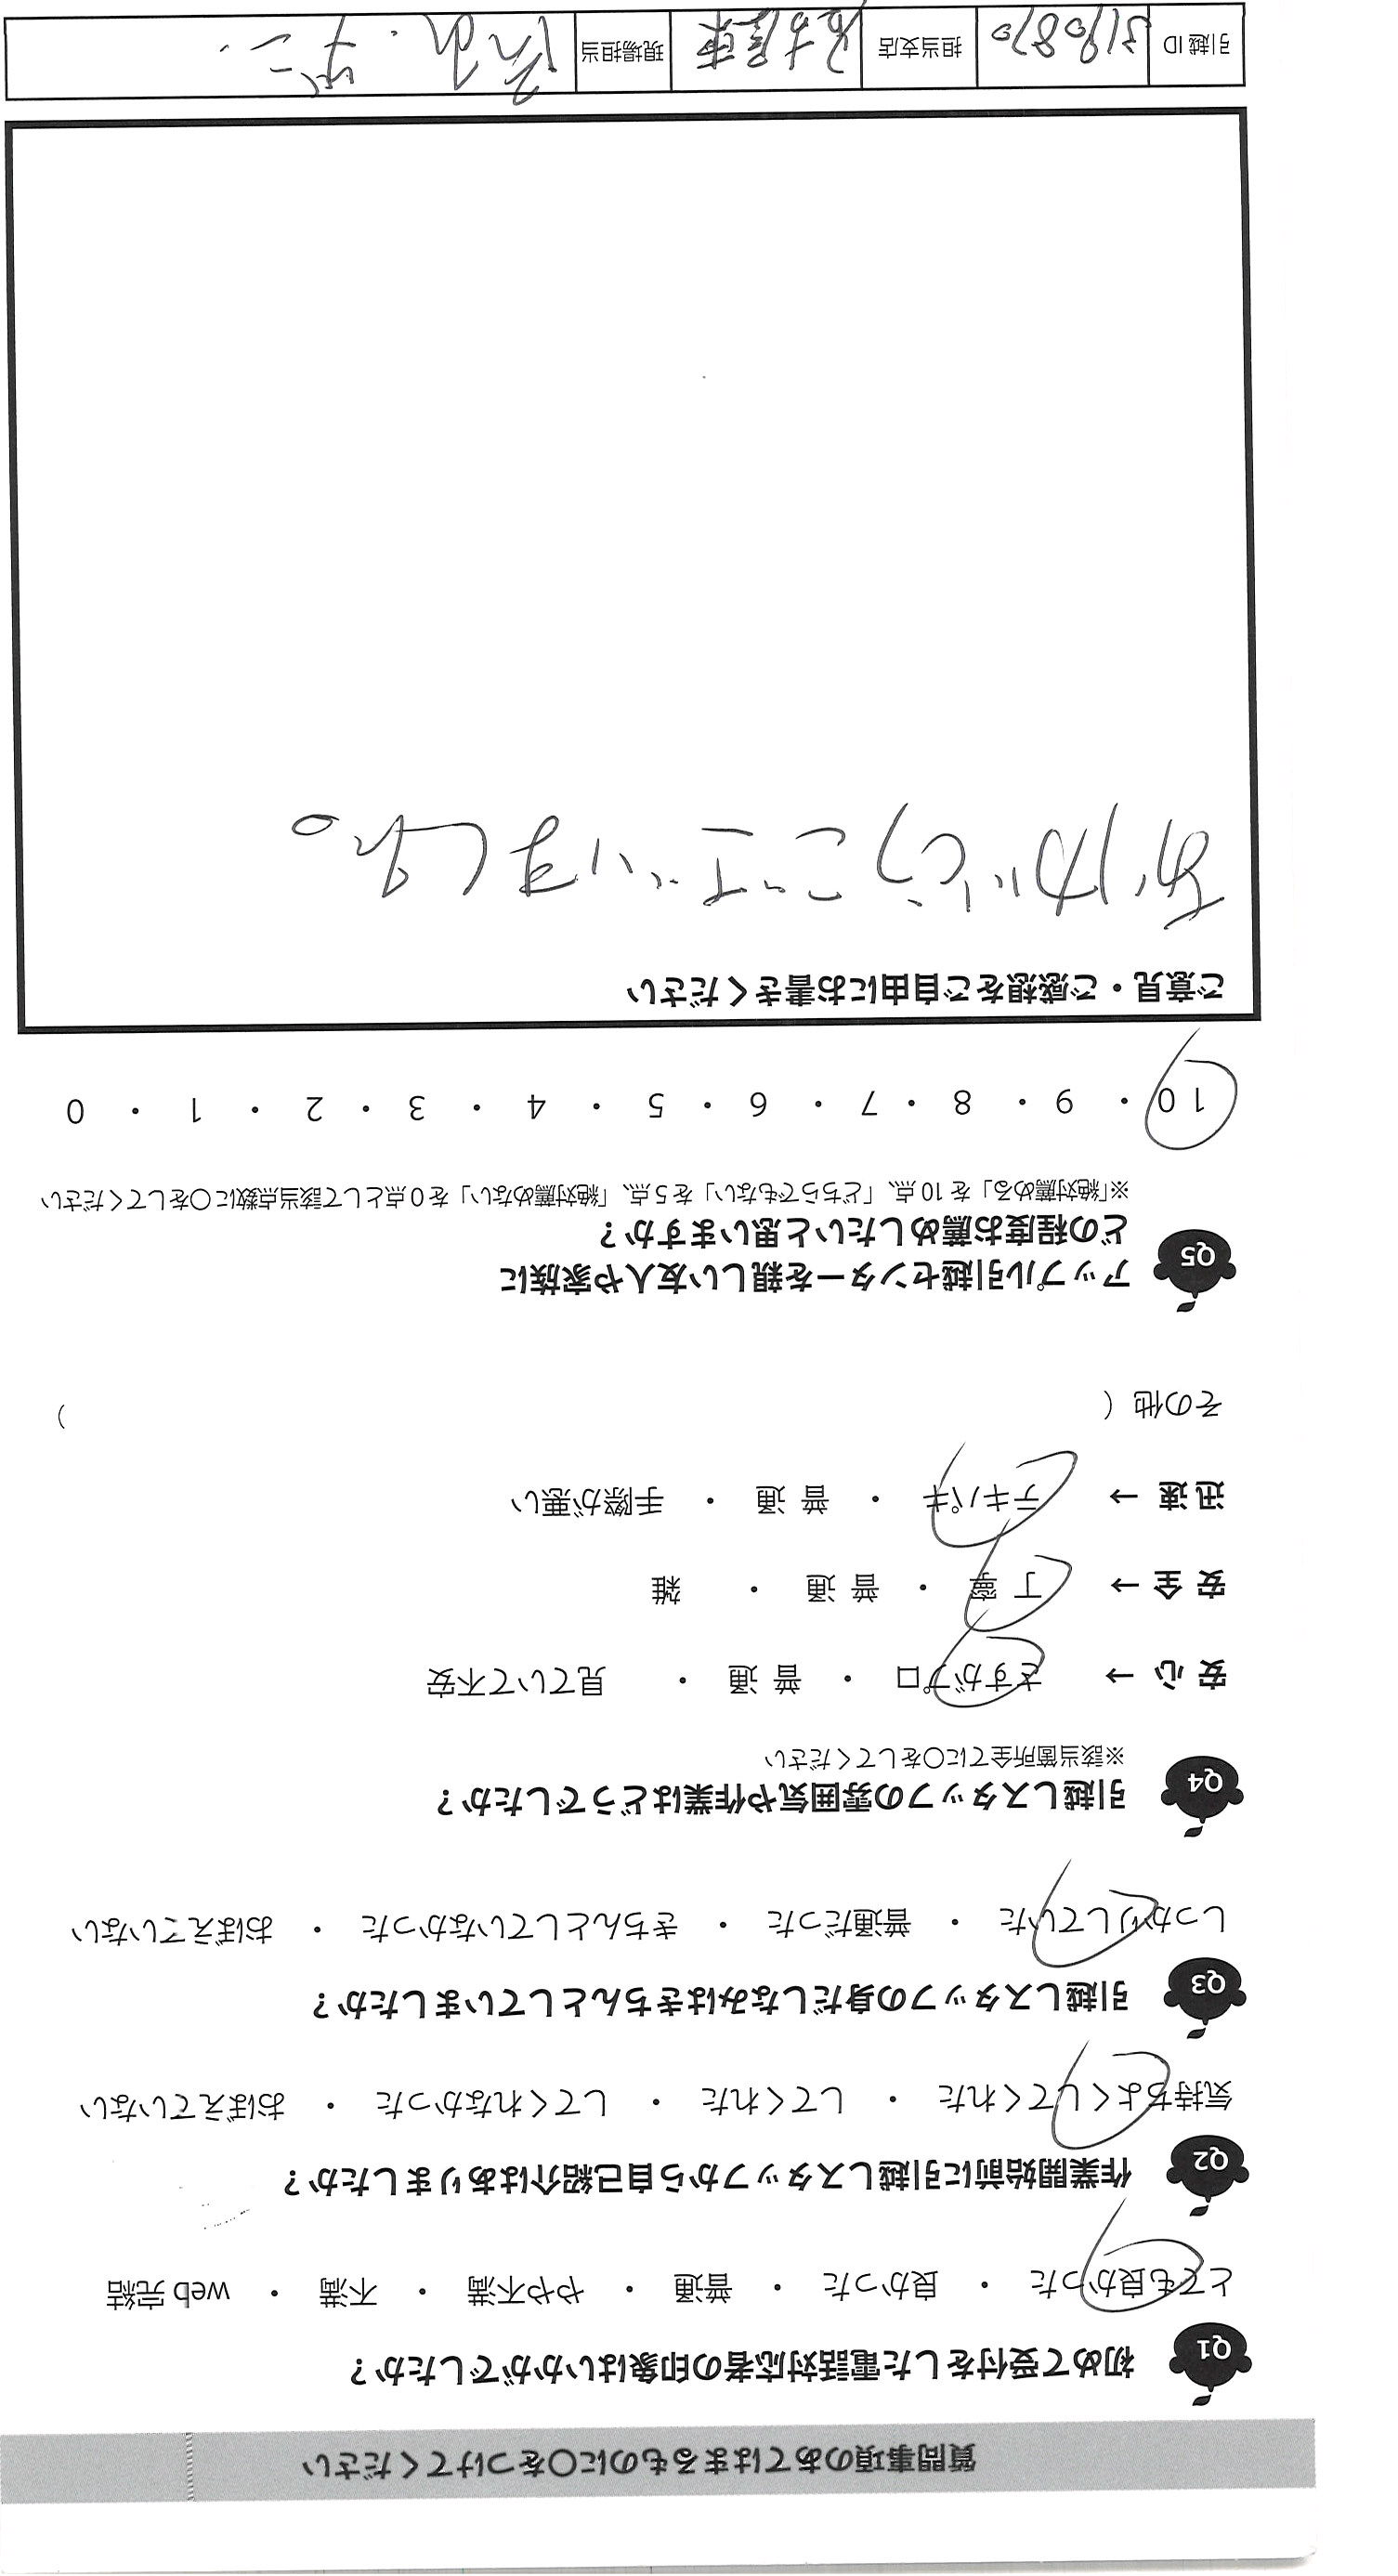 質問事項のあてはまるものに〇をつけてください
Q1 初めて受付をした電話対応者の印象はいかがでしたか？
とても良かった ・ 良かった ・ 普通 ・ やや不満 ・ 不満 ・ web 完結
Q2 作業開始前に引越しスタッフから自己紹介はありましたか？
気持ちよくしてくれた ・ してくれた ・ してくれなかった ・ おぼえていない
Q3 引越しスタッフの身だしなみはきちんとしていましたか？
しっかりしていた ・ 普通だった ・ きちんとしていなかった ・ おぼえていない
Q4 引越しスタッフの雰囲気や作業はどうでしたか？
※該当箇所全てに〇をしてください
安心 → さすがプロ ・ 普通 ・ 見ていて不安
安全 → 丁寧 ・ 普通 ・ 雑
迅速 → テキパキ ・ 普通 ・ 手際が悪い
その他（ ）
Q5 アップル引越センターを親しい友人や家族に
どの程度お薦めしたいと思いますか？
※「絶対薦める」を10点、「どちらでもない」を5点、「絶対薦めない」を0点として該当点数に〇をしてください
10 ・ 9 ・ 8 ・ 7 ・ 6 ・ 5 ・ 4 ・ 3 ・ 2 ・ 1 ・ 0
ご意見・ご感想をご自由にお書きください
ありがとうございました。
引越ID 3190870 担当支店 名古屋東 現場担当